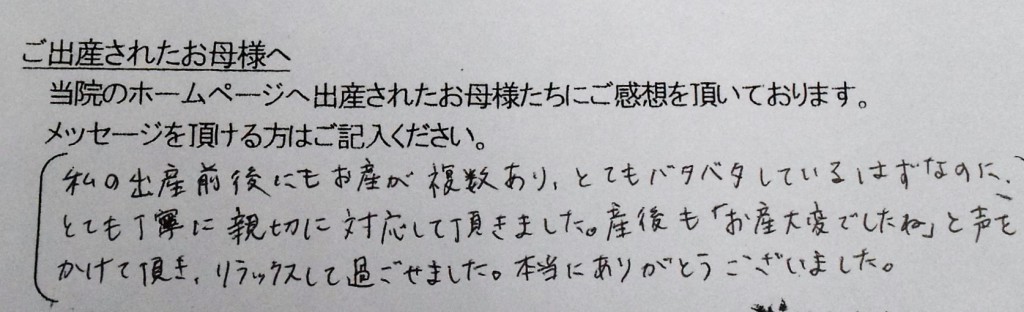 ご出産されたお母様へ
当院のホームページへ出産されたお母様たちにご感想を頂いております。
メッセージを頂ける方はご記入ください。
私の出産前後にもお産が複数あり、とてもバタバタしているはずなのに、
とても丁寧に親切に対応して頂きました。産後も「お産大変でしたね」と声を
かけて頂き、リラックスして過ごせました。本当にありがとうございました。